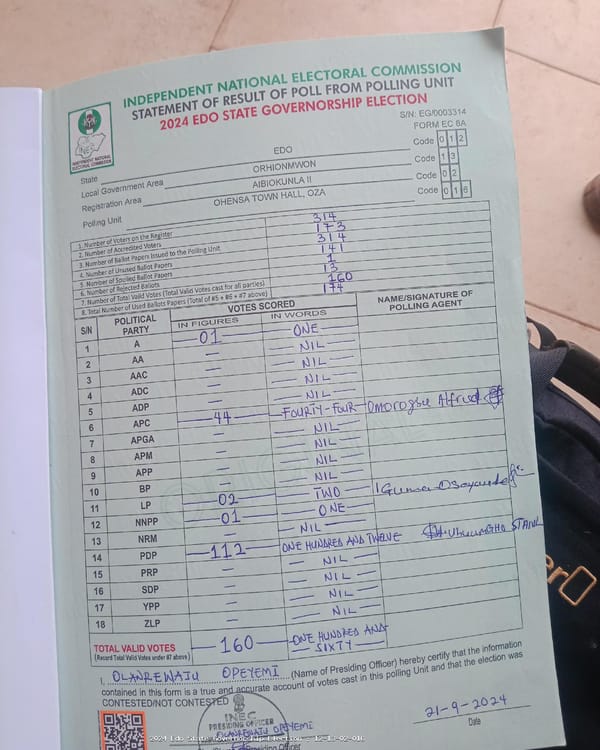 INDEPENDENT NATIONAL ELECTORAL COMMISSION
STATEMENT OF RESULT OF POLL FROM POLLING UNIT
2024 EDO STATE GOVERNORSHIP ELECTION
S/N: EG/0003314
FORM EC 8A
INEC
INDEPENDENT NATIONAL ELECTORAL COMMISSION
State EDO Code 0 1 2
Local Government Area ORHIONMWON Code 1 3
Registration Area AIBIOKUNLA II Code 0 2
Polling Unit OHENSA TOWN HALL, OZA Code 0 1 6
1. Number of Voters on the Register 314
2. Number of Accredited Voters 173
3. Number of Ballot Papers Issued to the Polling Unit 314
4. Number of Unused Ballot Papers 141
5. Number of Spoiled Ballot Papers 1
6. Number of Rejected Ballots 13
7. Number of Total Valid Votes (Total Valid Votes cast for all parties) 160
8. Total Number of Used Ballots Papers (Total of #5 + #6 + #7 above) 174
S/N POLITICAL PARTY VOTES SCORED NAME/SIGNATURE OF POLLING AGENT
IN FIGURES IN WORDS
1 A 01 ONE
2 AA — NIL
3 AAC — NIL
4 ADC — NIL
5 ADP — NIL
6 APC 44 FOURTY-FOUR Omorogbe Alfred
7 APGA — NIL
8 APM — NIL
9 APP — NIL
10 BP — NIL
11 LP 02 TWO
12 NNPP 01 ONE
13 NRM — NIL
14 PDP 112 ONE HUNDRED AND TWELVE
15 PRP — NIL
16 SDP — NIL
17 YPP — NIL
18 ZLP — NIL
TOTAL VALID VOTES 160 ONE HUNDRED AND SIXTY
(Record Total Valid Votes under #7 above)
I, OLANREWAJU OPEYEMI (Name of Presiding Officer) hereby certify that the information
contained in this form is a true and accurate account of votes cast in this polling Unit and that the election was
CONTESTED/NOT CONTESTED
INEC
PRESIDING OFFICER
OLANREWAJU OPEYEMI
21-9-2024
Date
Presiding Officer